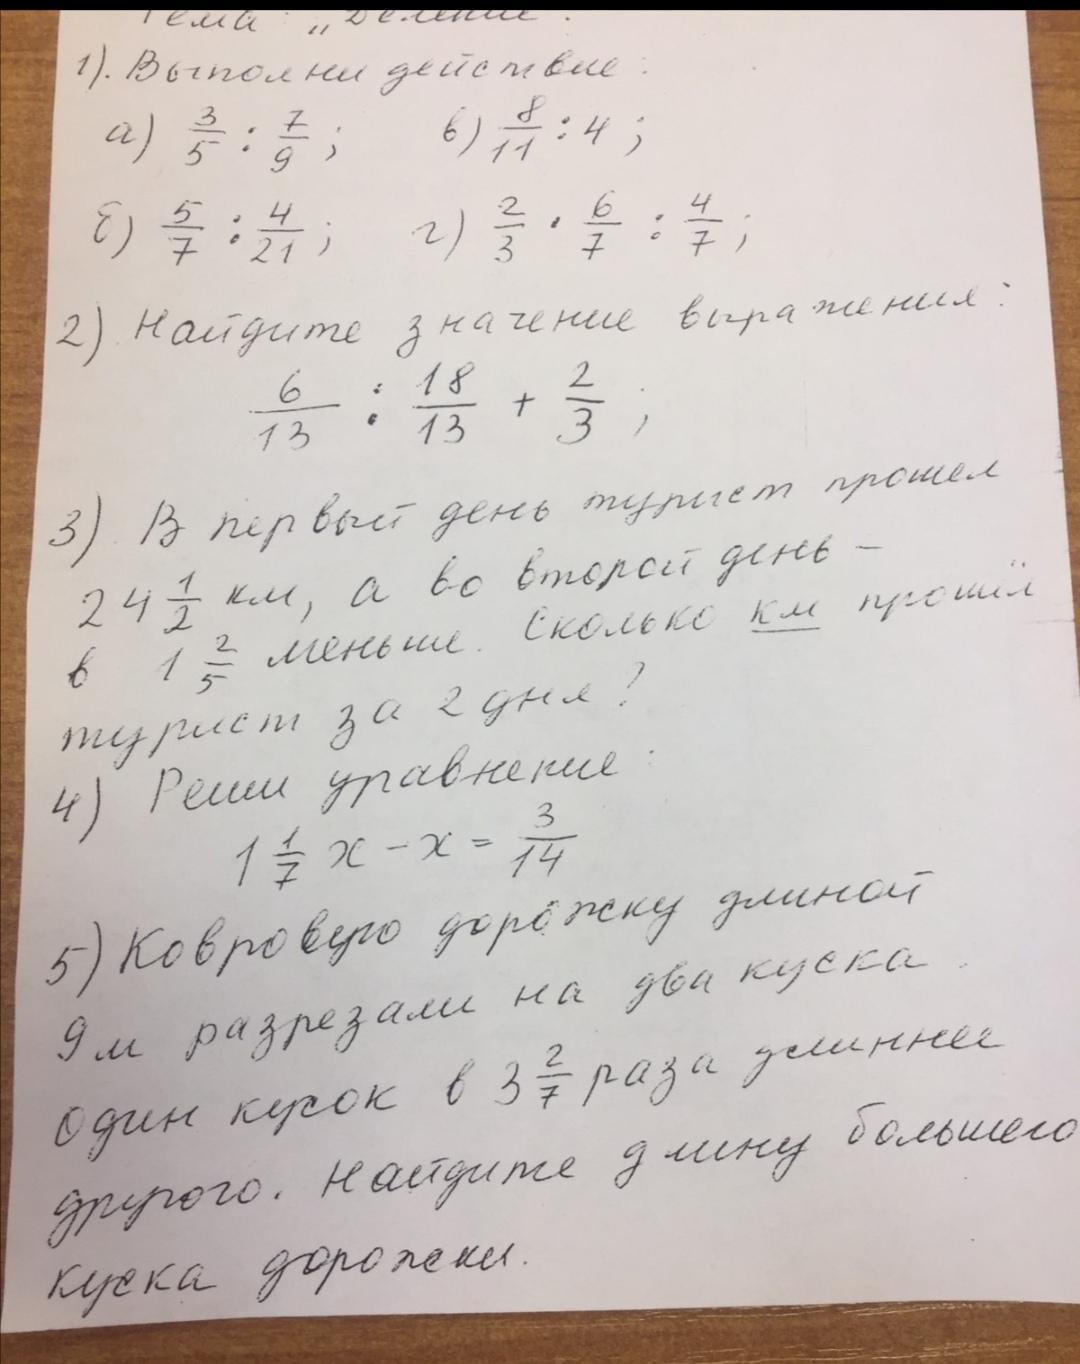 Тема: „Деление".
1). Выполни действие:
а) 3/5 : 7/9; в) 8/11 : 4;
б) 5/7 : 4/21; г) 2/3 · 6/7 : 4/7;
2) Найдите значение выражения:
6/13 : 18/13 + 2/3;
3) В первый день турист прошел
24 1/2 км, а во второй день –
в 1 2/5 меньше. Сколько км прошёл
турист за 2 дня?
4) Реши уравнение:
1 1/7 x - x = 3/14
5) Ковровую дорожку длиной
9м разрезали на два куска.
Один кусок в 3 2/7 раза длиннее
другого. Найдите длину большего
куска дорожки.